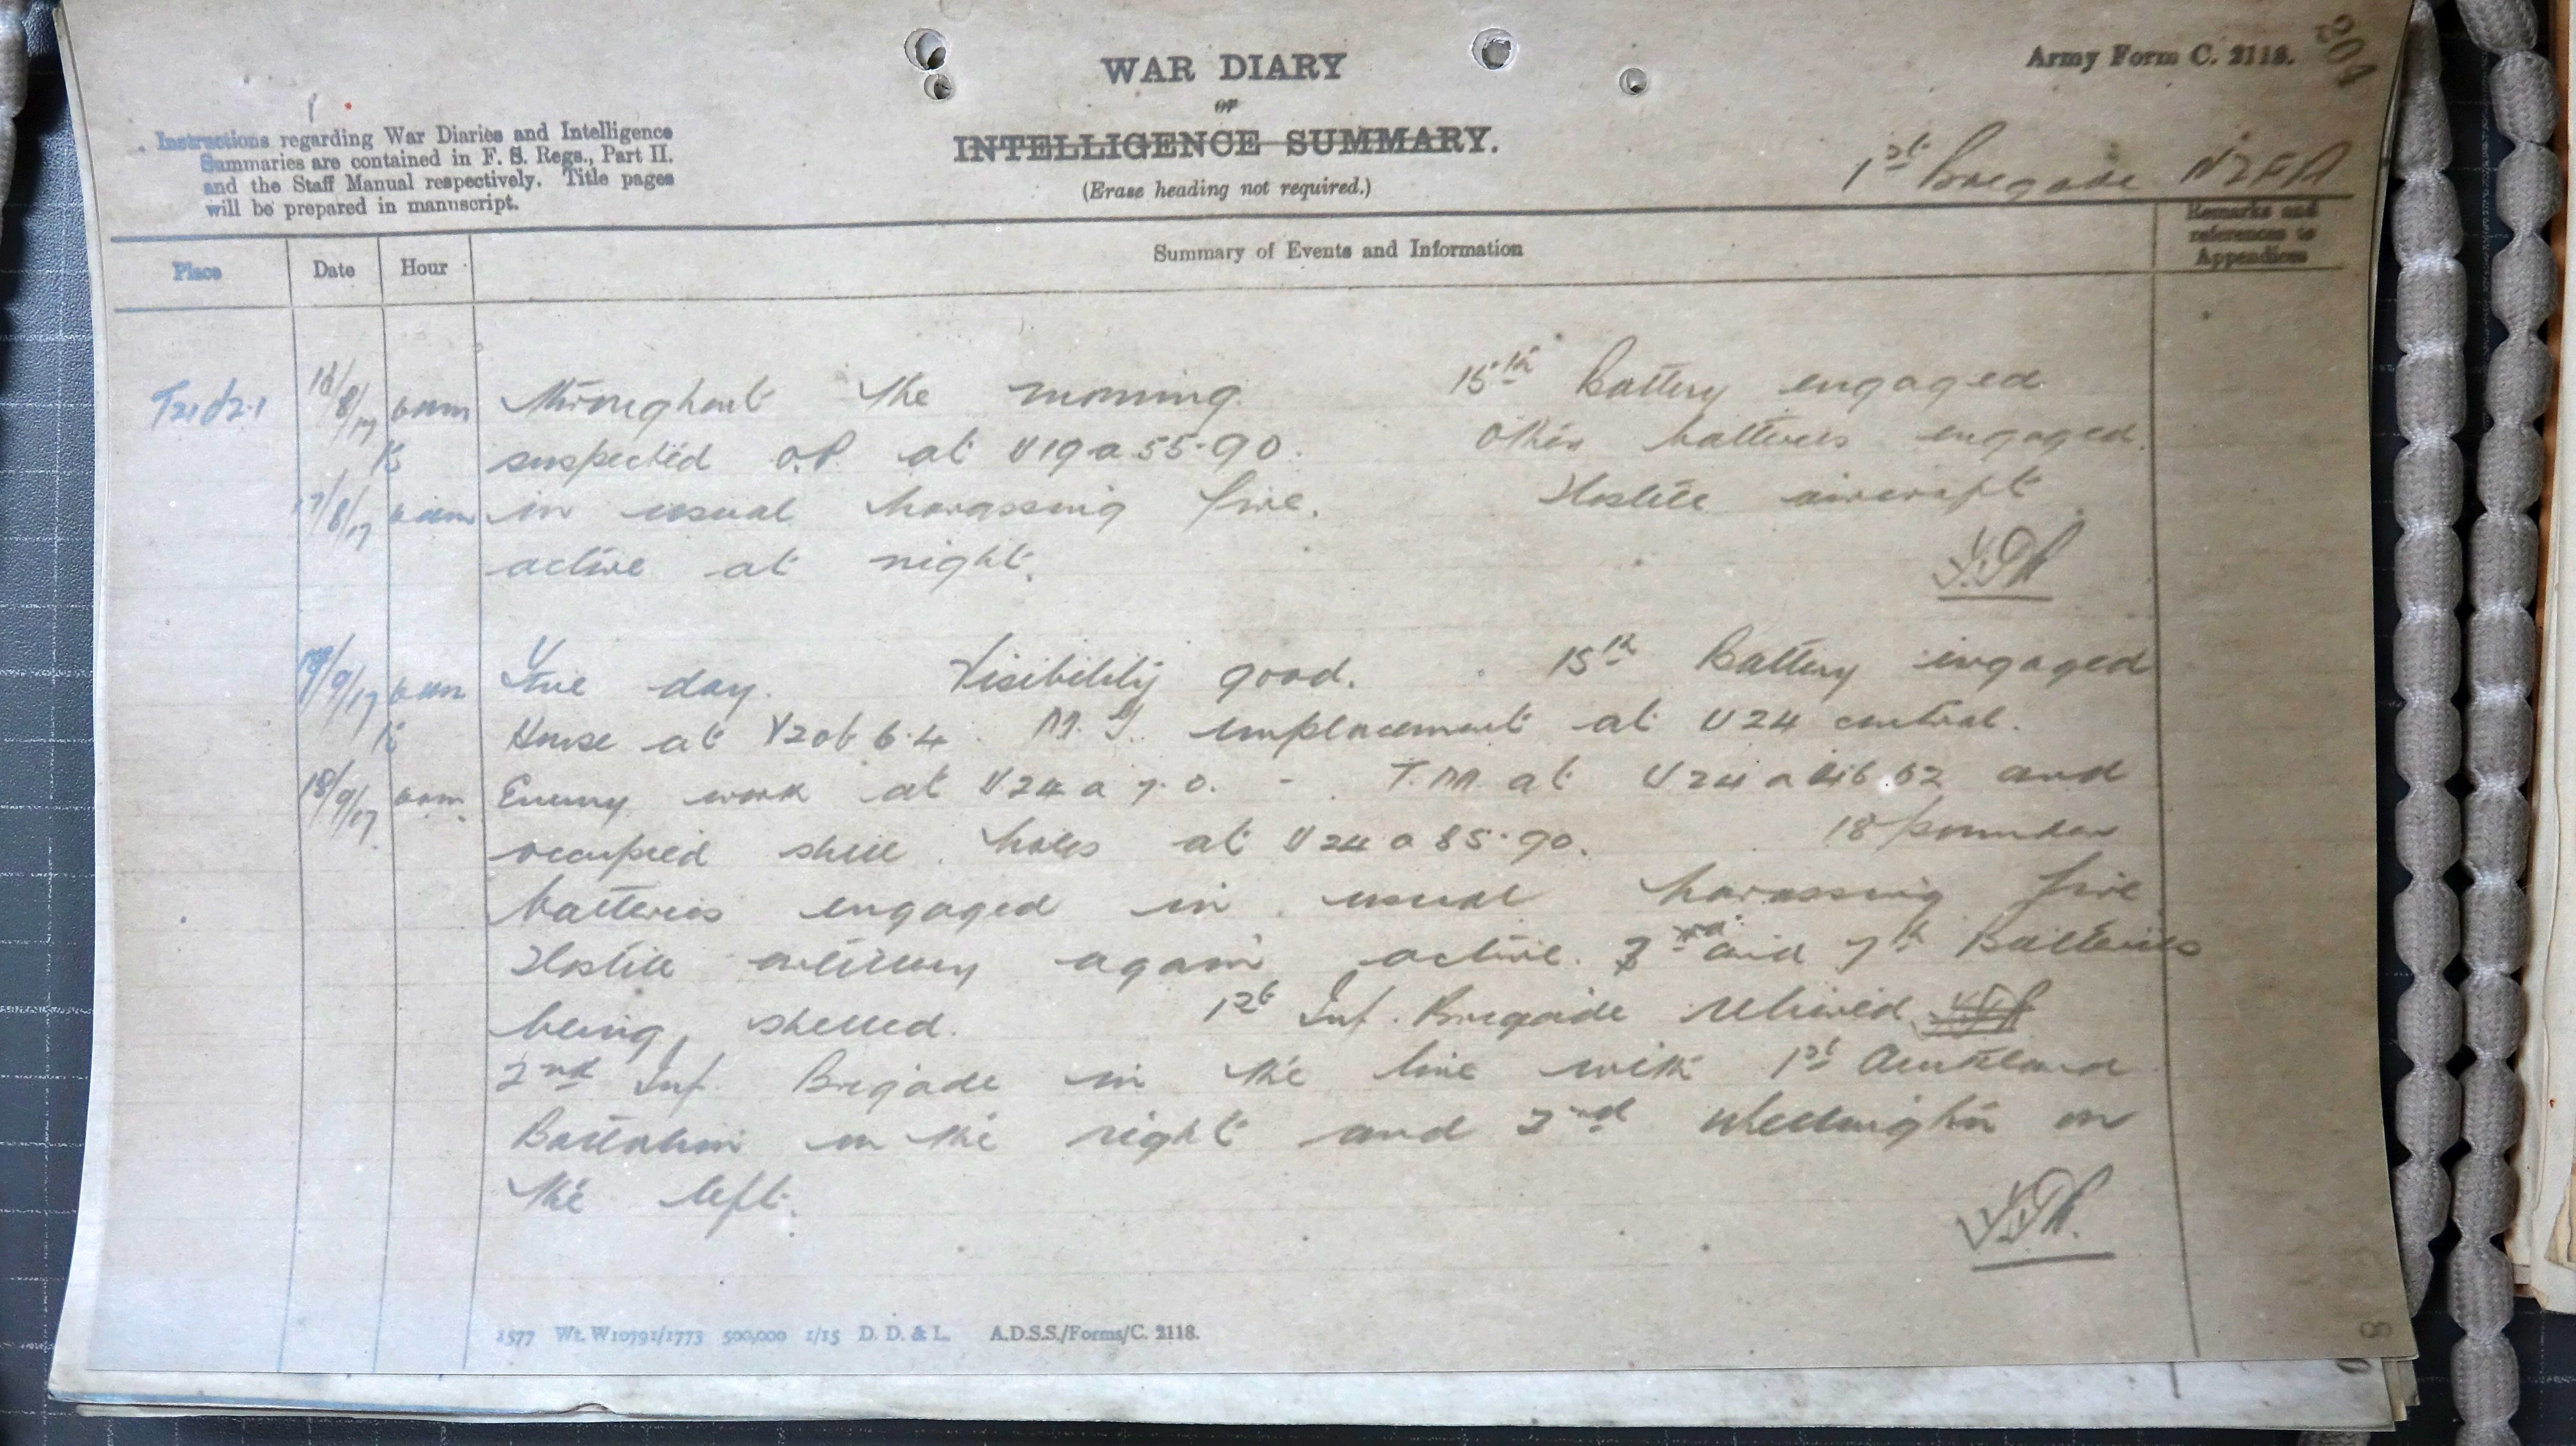 204
WAR DIARY
OR
INTELLIGENCE SUMMARY.
(Erase heading not required.)
Army Form C. 2118.
Instructions regarding War Diaries and Intelligence
Summaries are contained in F. S. Regs., Part II.
and the Staff Manual respectively. Title pages
will be prepared in manuscript.
1st Brigade NZFA
Place Date Hour Summary of Events and Information Remarks and
references to
Appendices
T21d2.1 16/8/17 6am Throughout the morning 15th Battery engaged
to suspected O.P. at U19a55.90. Other batteries engaged
17/8/17 6am in usual harassing fire. Hostile aircraft
active at night.
6am Fine day. Visibility good. 15th Battery engaged
to House at V20b6.4. M.G. emplacement at U24 central.
18/9/17 6am Enemy work at U24a7.0. - T.M. at U24a and
occupied shell holes at U24a85.90. 18 pounder
batteries engaged in usual harassing fire
Hostile artillery again active. 3rd and 7th Batteries
being shelled. 1st Inf. Brigade relieved
2nd Inf. Brigade in the line with 1st Auckland
Battalion on the right and 2nd Wellington on
the left.
1577 Wt. W10791/1773 500,000 1/15 D. D. & L. A.D.S.S./Forms/C. 2118.
8